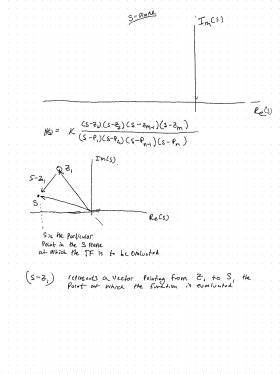 S-plane
Im(s)
Re(s)
H(s) = K (s-z1)(s-z2)(s-zm-1)(s-zm) / (s-p1)(s-p2)(s-pn-1)(s-pn)
Im(s)
z1
s-z1
s
Re(s)
s is the particular
point in the s plane
at which the TF is to be evaluated
(s-z1) represents a vector pointing from z1 to s, the
point at which the function is evaluated